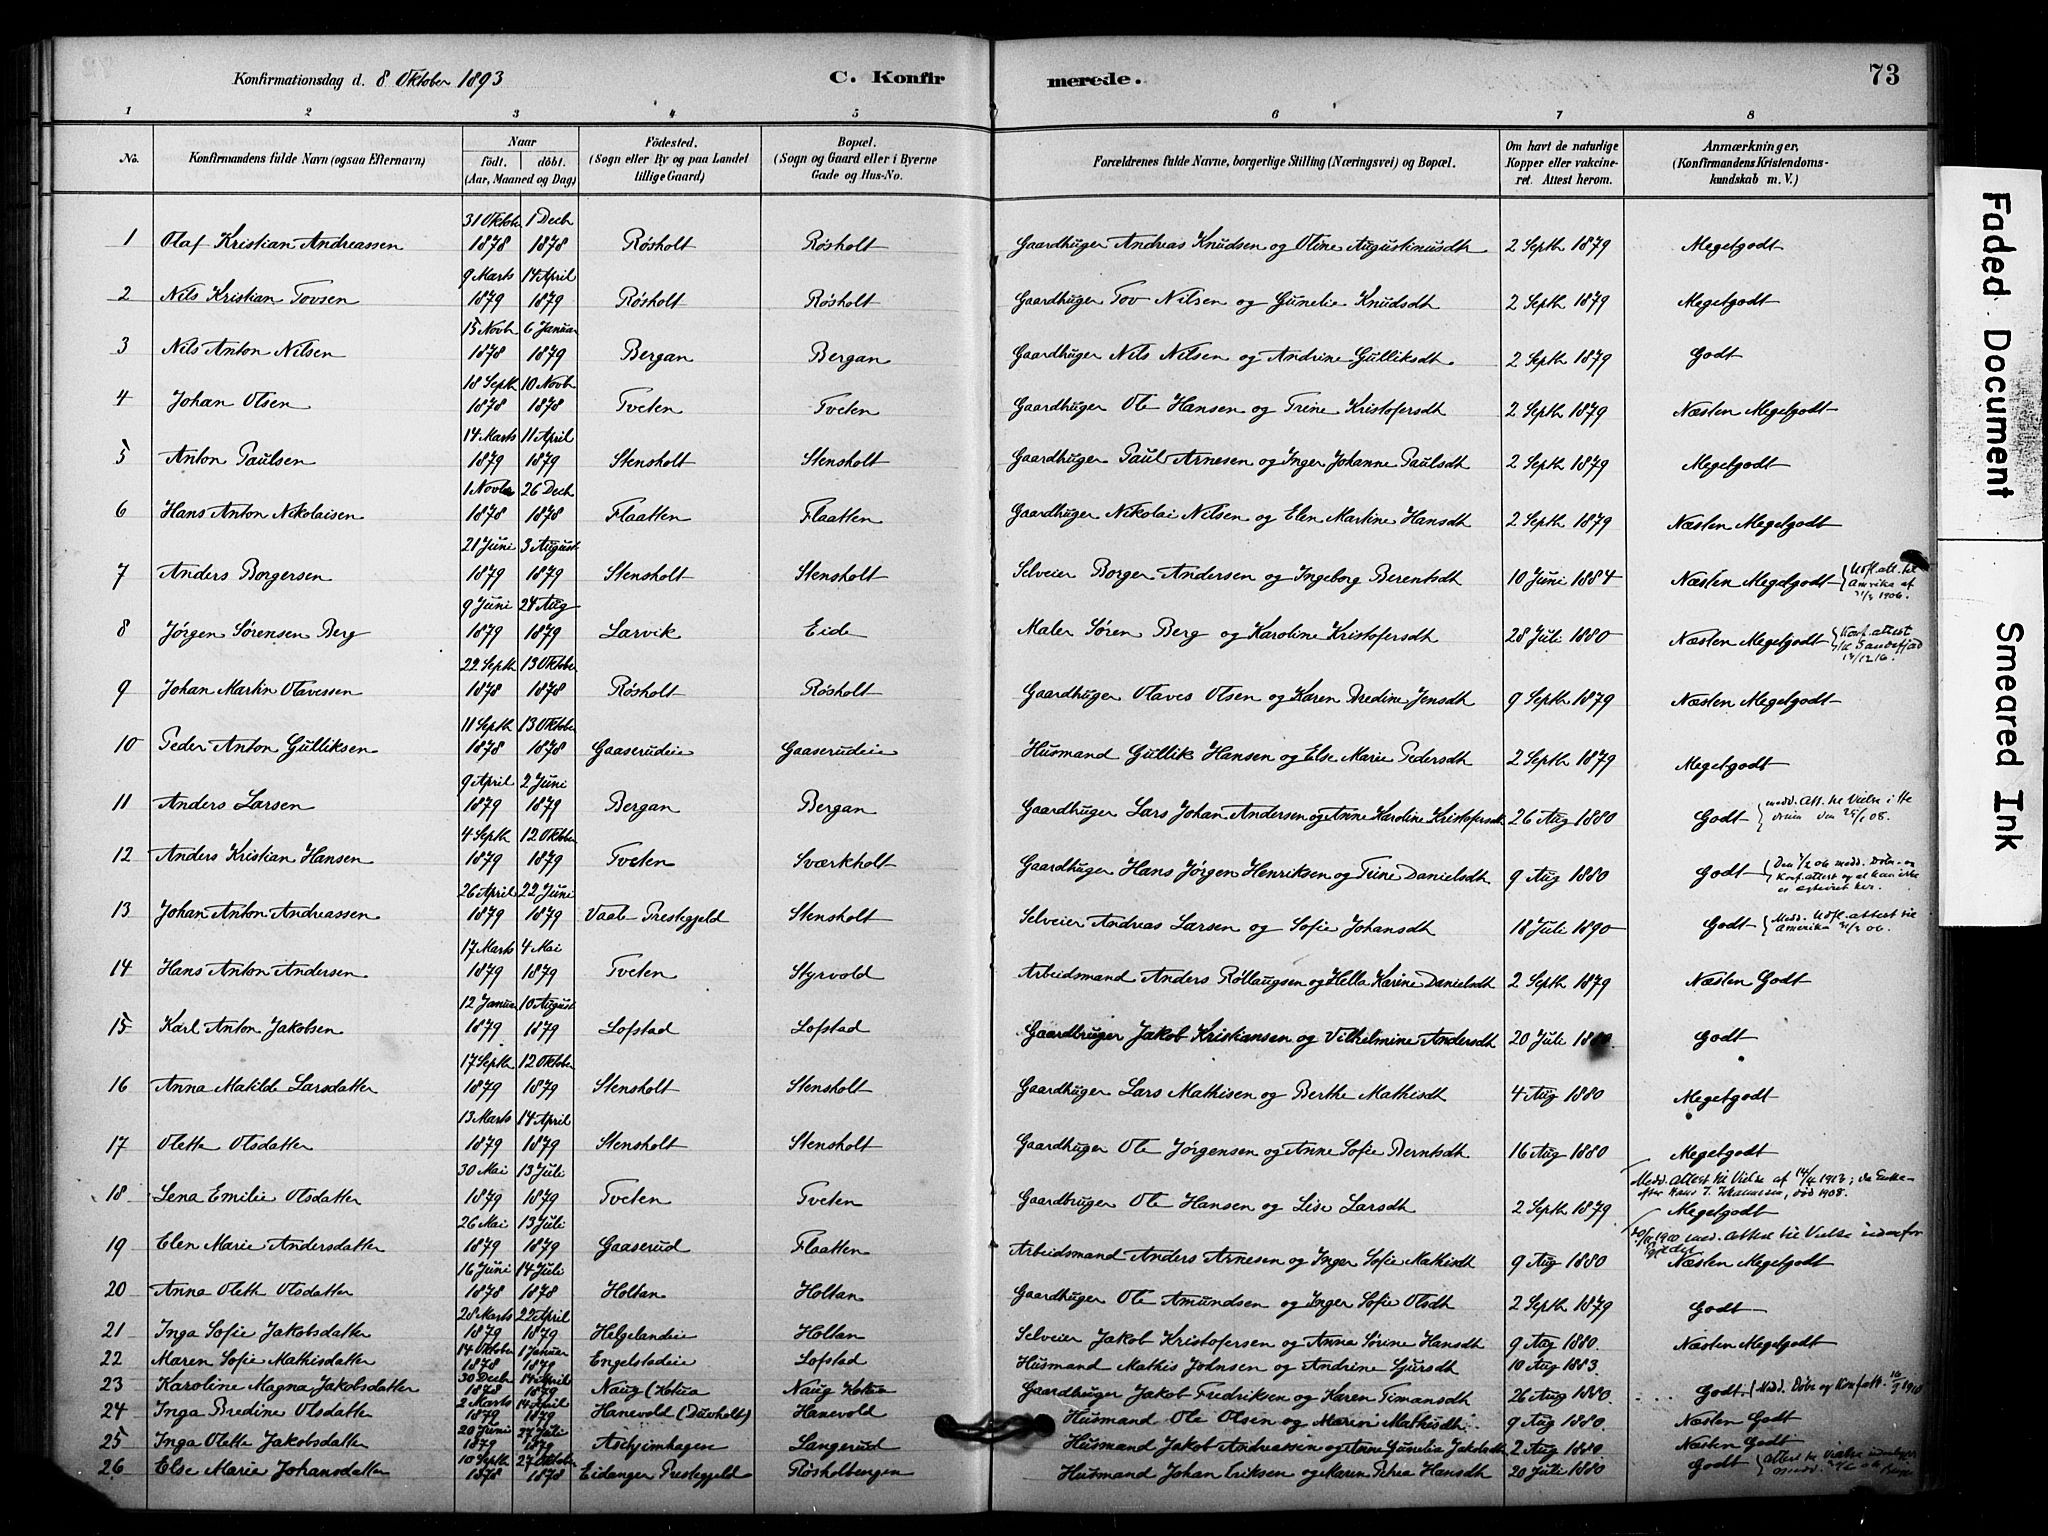 Konfirmationsdag d. 8 Oktober 1893 C. Konfirmerede. 73
1 2 3 4 5 6 7 8
No. Konfirmandens fulde Navn (ogsaa Efternavn) Naar födt. döbt. (Aar, Maaned og Dag) Födested. (Sogn eller By og paa Landet tillige Gaard) Bopæl. (Sogn og Gaard eller i Byerne Gade og Hus-No. Forældrenes fulde Navne, borgerlige Stilling (Næringsvei) og Bopæl. Om havt de naturlige Kopper eller vakcineret. Attest herom. Anmærkninger, (Konfirmandens Kristendomskundskab m. V.)
1 Olaf Kristian Andreassen 31 Oktober 1878 1 Decb 1878 Røsholt Røsholt Gaardbruger Andreas Knudsen og Oline Augustinusdt 2 Septb 1879 Megetgodt
2 Nils Kristian Tovsen 9 Marts 1879 14 April 1879 Røsholt Røsholt Gaardbruger Tov Nilsen og Gunelie Knudsdt 2 Septb 1879 Megetgodt
3 Nils Anton Nilsen 15 Novb 1878 6 Januar 1879 Bergan Bergan Gaardbruger Nils Nilsen og Andrine Gulliksdt 2 Septb 1879 Godt
4 Johan Olsen 18 Septb 1878 10 Novb 1878 Tveten Tveten Gaardbruger Ole Hansen og Trine Kristofersdt 2 Septb 1879 Næsten Megetgodt
5 Anton Paulsen 14 Marts 1879 11 April 1879 Stensholt Stensholt Gaardbruger Paul Arnesen og Inger Johanne Paulsdt 2 Septb 1879 Megetgodt
6 Hans Anton Nikolaisen 1 Novbr 1878 26 Decb 1878 Flaatten Flaatten Gaardbruger Nikolai Nilsen og Elen Martine Hansdt 2 Septb 1879 Næsten Megetgodt
7 Anders Borgersen 21 Juni 1879 3 August 1879 Stensholt Stensholt Selveier Borger Andersen og Ingeborg Berentsdt 10 Juni 1884 Næsten Megetgodt Udfl. att. til Amrika af 1906.
8 Jørgen Sørensen Berg 9 Juni 1879 24 Aug 1879 Larvik Eide Maler Søren Berg og Karoline Kristofersdt 28 Juli 1880 Næsten Megetgodt Konf. attest til Sandefjord
9 Johan Martin Olavessen 22 Septb 1878 13 Oktober 1878 Røsholt Røsholt Gaardbruger Olaves Olsen og Karen Bredine Jensdt 9 Septb 1879 Næsten Megetgodt
10 Peder Anton Gulliksen 11 Septb 1878 13 Oktober 1878 Gaaserudeie Gaaserudeie Husmand Gullik Hansen og Else Marie Pedersdt 2 Septb 1879 Megetgodt
11 Anders Larsen 9 April 1879 2 Juni 1879 Bergan Bergan Gaardbruger Lars Johan Andersen og Anne Karoline Kristofersdt 26 Aug 1880 Godt medd. Att. til Vielse i He drum den 25/1 08.
12 Anders Kristian Hansen 4 Septb 1879 12 Oktober 1879 Tveten Sværkholt Gaardbruger Hans Jørgen Henriksen og Trine Danielsdt 9 Aug 1880 Godt Den /2 06 medd. Døbe- og Konf. attest og at han ikke er ægteviet her.
13 Johan Anton Andreassen 26 April 1879 22 Juni 1879 Vaale Prestegjeld Stensholt Selveier Andreas Larsen og Sofie Johansdt 18 Juli 1890 Godt Medd. Udfl. attest til Amerika 21/3 06.
14 Hans Anton Andersen 17 Marts 1879 4 Mai 1879 Tveten Styrvold Arbeidsmand Anders Røllaugsen og Hella Karine Danielsdt 2 Septb 1879 Næsten Godt
15 Karl Anton Jakobsen 12 Januar 1879 10 August 1879 Lofstad Lofstad Gaardbruger Jakob Kristiansen og Vilhelmine Andersdt 20 Juli 1880. Godt
16 Anna Matilde Larsdatter 17 Septb 1879 12 Oktober 1879 Stensholt Stensholt Gaardbruger Lars Mathisen og Berthe Mathisdt 4 Aug 1880 Megetgodt
17 Olette Olsdatter 13 Marts 1879 14 April 1879 Stensholt Stensholt Gaardbruger Ole Jørgensen og Anne Sofie Berntsdt 16 Aug 1880 Megetgodt
18 Lena Emilie Olsdatter 30 Mai 1879 13 Juli 1879 Tveten Tveten Gaardbruger Ole Hansen og Lise Larsdt 2 Septb 1879 Medd. attest til Vielse af 14/4 1913; da Enke efter Hans J. Johannesen, død 1908. Megetgodt
19 Elen Marie Andersdatter 26 Mai 1879 13 Juli 1879 Gaaserud Flaatten Arbeidsmand Anders Arnesen og Inger Sofie Mathisdt 9 Aug 1880 1900 med. Attest til Vielse udenfor Næsten Megetgodt
20 Anna Oletth Olsdatter 16 Juni 1878 14 Juli 1878 Holtan Holtan Gaardbruger Ole Amundsen og Inger Sofie Olsdt 2 Septb 1879 Godt
21 Inga Sofie Jakobsdatter 28 Marts 1879 22 April 1879 Helgelandeie Holtan Selveier Jakob Kristofersen og Anna Sørine Hansdt 9 Aug 1880. Næsten Megetgodt
22 Maren Sofie Mathisdatter 14 Oktober 1878 1 Januar 1879 Engelstadeie Lofstad Husmand Mathis Johnsen og Andrine Sjursdt 10 Aug 1883.
23 Karoline Magna Jakobsdatter 30 Decbr 1878 14 April 1879 Naug Naug Gaardbruger Jakob Fredriksen og Karen Timansdt 26 Aug 1880. Godt Medd. Døbe og Konf att.
24 Inga Bredine Olsdatter 2 Marts 1879 14 April 1879 Hanevold Hanevold Husmand Ole Olsen og Maren Mathisdt 9 Aug 1880. Næsten Godt
25 Inga Olette Jakobsdatter 20 Juni 1879 27 Juli 1879 Askjimhagen Langerud Husmand Jakob Andreassen og Anne Gunelia Jakobsdt 2 Aug 1880 Næsten Godt
26 Else Marie Johansdatter 10 Septb 1878 27 Oktober 1878 Eidanger Prestegjeld Røsholbergen Husmand Johan Eriksen og Maren Petrea Hansdt 20 Juli 1880 Godt Attest til Vielse
Faded Document
Smeared Ink